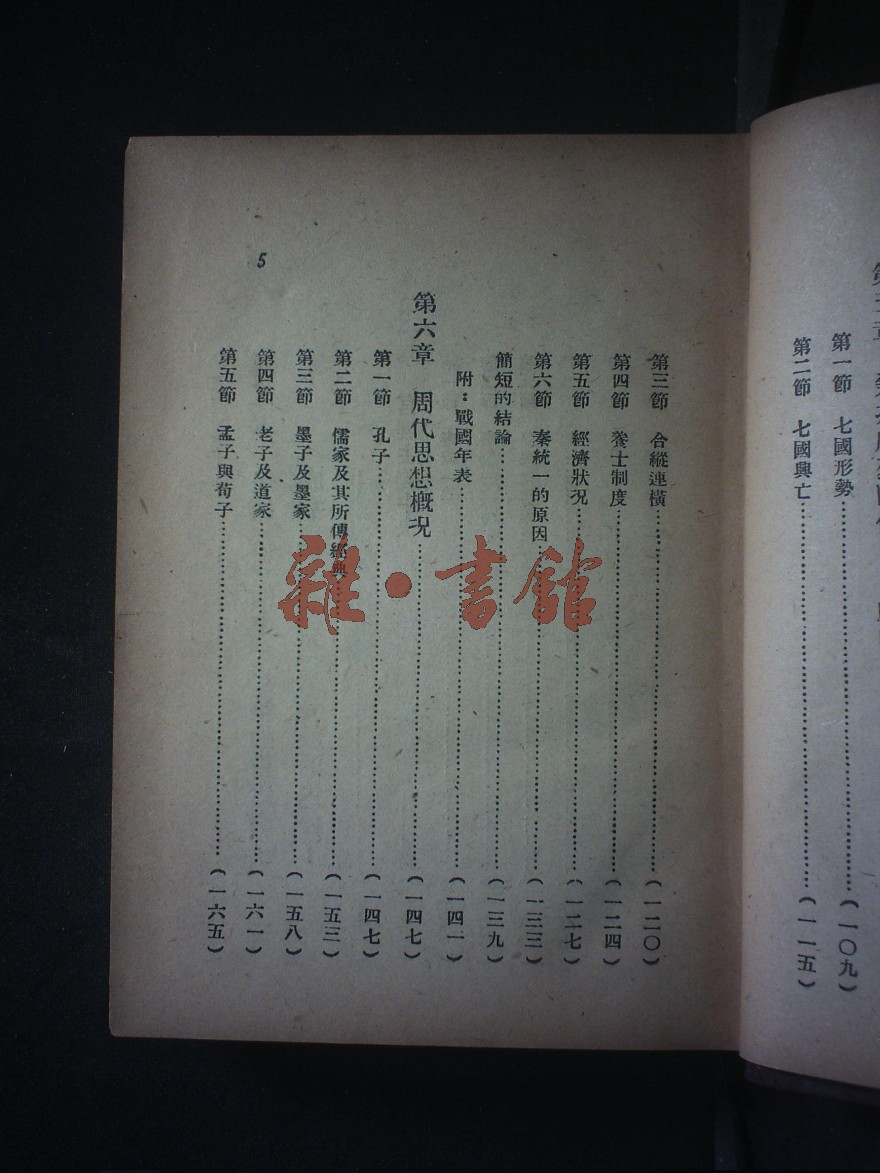 第一節　七國形勢……(一〇九)
第二節　七國興亡……(一一五)
第三節　合縱連橫……(一二〇)
第四節　養士制度……(一二四)
第五節　經濟狀況……(一二七)
第六節　秦統一的原因……(一三三)
簡短的結論……(一三九)
附：戰國年表……(一四一)
第六章　周代思想概況……(一四七)
第一節　孔子……(一四七)
第二節　儒家及其所傳經典……(一五三)
第三節　墨子及墨家……(一五八)
第四節　老子及道家……(一六一)
第五節　孟子與荀子……(一六五)
5
雜·書館